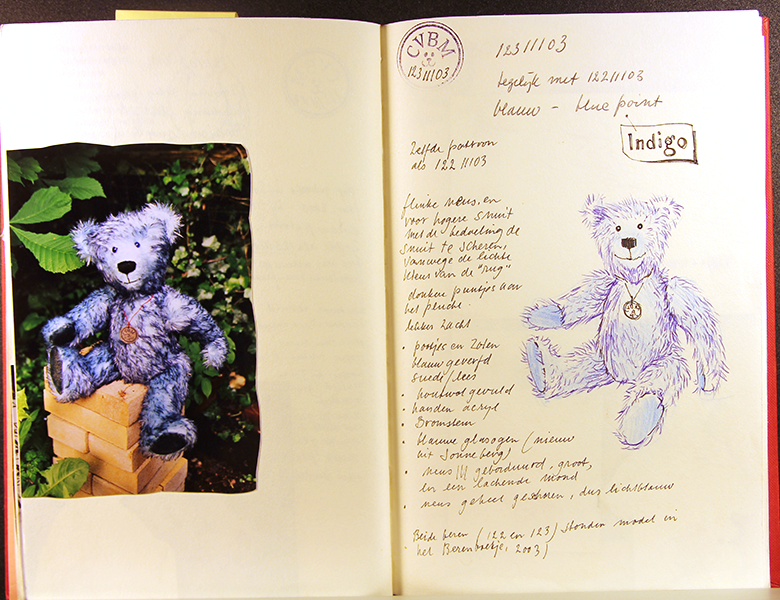 CVBM
123 11 03
123 11 03
tegelijk met 122 11 03
blauw - blue point
Indigo
Zelfde patroon
als 122 11 03
flinke neus, en
voor hogere snuit
met de bedoeling de
snuit te scheren,
vanwege de lichte
kleur van de "rug"
donkere puntjes aan
het pluche.
lekker zacht
• pootjes en zolen
blauw geverfd
suede/leer
• houtwol gevuld
• handen acryl
• Bromstem
• blauwe glasogen (nieuw
uit Sonneberg)
• neus ||| geborduurd, groot,
en een lachende mond
• neus geheel geschoren, dus lichtblauw
Beide beren (122 en 123) stonden model in
het Berenboekje, 2003)